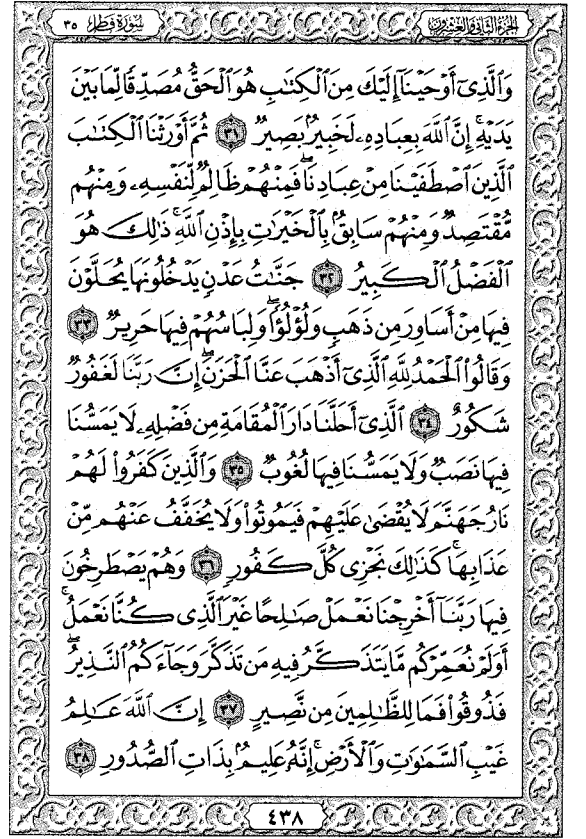 الجزء الثاني والعشرون
سورة فاطر ٣٥
وَٱلَّذِىٓ أَوْحَيْنَآ إِلَيْكَ مِنَ ٱلْكِتَٰبِ هُوَ ٱلْحَقُّ مُصَدِّقًا لِّمَا بَيْنَ
يَدَيْهِ إِنَّ ٱللَّهَ بِعِبَادِهِۦ لَخَبِيرٌۢ بَصِيرٌ ٣١ ثُمَّ أَوْرَثْنَا ٱلْكِتَٰبَ
ٱلَّذِينَ ٱصْطَفَيْنَا مِنْ عِبَادِنَاۖ فَمِنْهُمْ ظَالِمٌ لِّنَفْسِهِۦ وَمِنْهُم
مُّقْتَصِدٌ وَمِنْهُمْ سَابِقٌۢ بِٱلْخَيْرَٰتِ بِإِذْنِ ٱللَّهِۚ ذَٰلِكَ هُوَ
ٱلْفَضْلُ ٱلْكَبِيرُ ٣٢ جَنَّٰتُ عَدْنٍ يَدْخُلُونَهَا يُحَلَّوْنَ
فِيهَا مِنْ أَسَاوِرَ مِن ذَهَبٍ وَلُؤْلُؤًاۖ وَلِبَاسُهُمْ فِيهَا حَرِيرٌ ٣٣
وَقَالُوا۟ ٱلْحَمْدُ لِلَّهِ ٱلَّذِىٓ أَذْهَبَ عَنَّا ٱلْحَزَنَۖ إِنَّ رَبَّنَا لَغَفُورٌ
شَكُورٌ ٣٤ ٱلَّذِىٓ أَحَلَّنَا دَارَ ٱلْمُقَامَةِ مِن فَضْلِهِۦ لَا يَمَسُّنَا
فِيهَا نَصَبٌ وَلَا يَمَسُّنَا فِيهَا لُغُوبٌ ٣٥ وَٱلَّذِينَ كَفَرُوا۟ لَهُمْ
نَارُ جَهَنَّمَ لَا يُقْضَىٰ عَلَيْهِمْ فَيَمُوتُوا۟ وَلَا يُخَفَّفُ عَنْهُم مِّنْ
عَذَابِهَاۚ كَذَٰلِكَ نَجْزِى كُلَّ كَفُورٍ ٣٦ وَهُمْ يَصْطَرِخُونَ
فِيهَا رَبَّنَآ أَخْرِجْنَا نَعْمَلْ صَٰلِحًا غَيْرَ ٱلَّذِى كُنَّا نَعْمَلُۚ
أَوَلَمْ نُعَمِّرْكُم مَّا يَتَذَكَّرُ فِيهِ مَن تَذَكَّرَ وَجَآءَكُمُ ٱلنَّذِيرُۖ
فَذُوقُوا۟ فَمَا لِلظَّٰلِمِينَ مِن نَّصِيرٍ ٣٧ إِنَّ ٱللَّهَ عَٰلِمُ
غَيْبِ ٱلسَّمَٰوَٰتِ وَٱلْأَرْضِۚ إِنَّهُۥ عَلِيمٌۢ بِذَاتِ ٱلصُّدُورِ ٣٨
٤٣٨